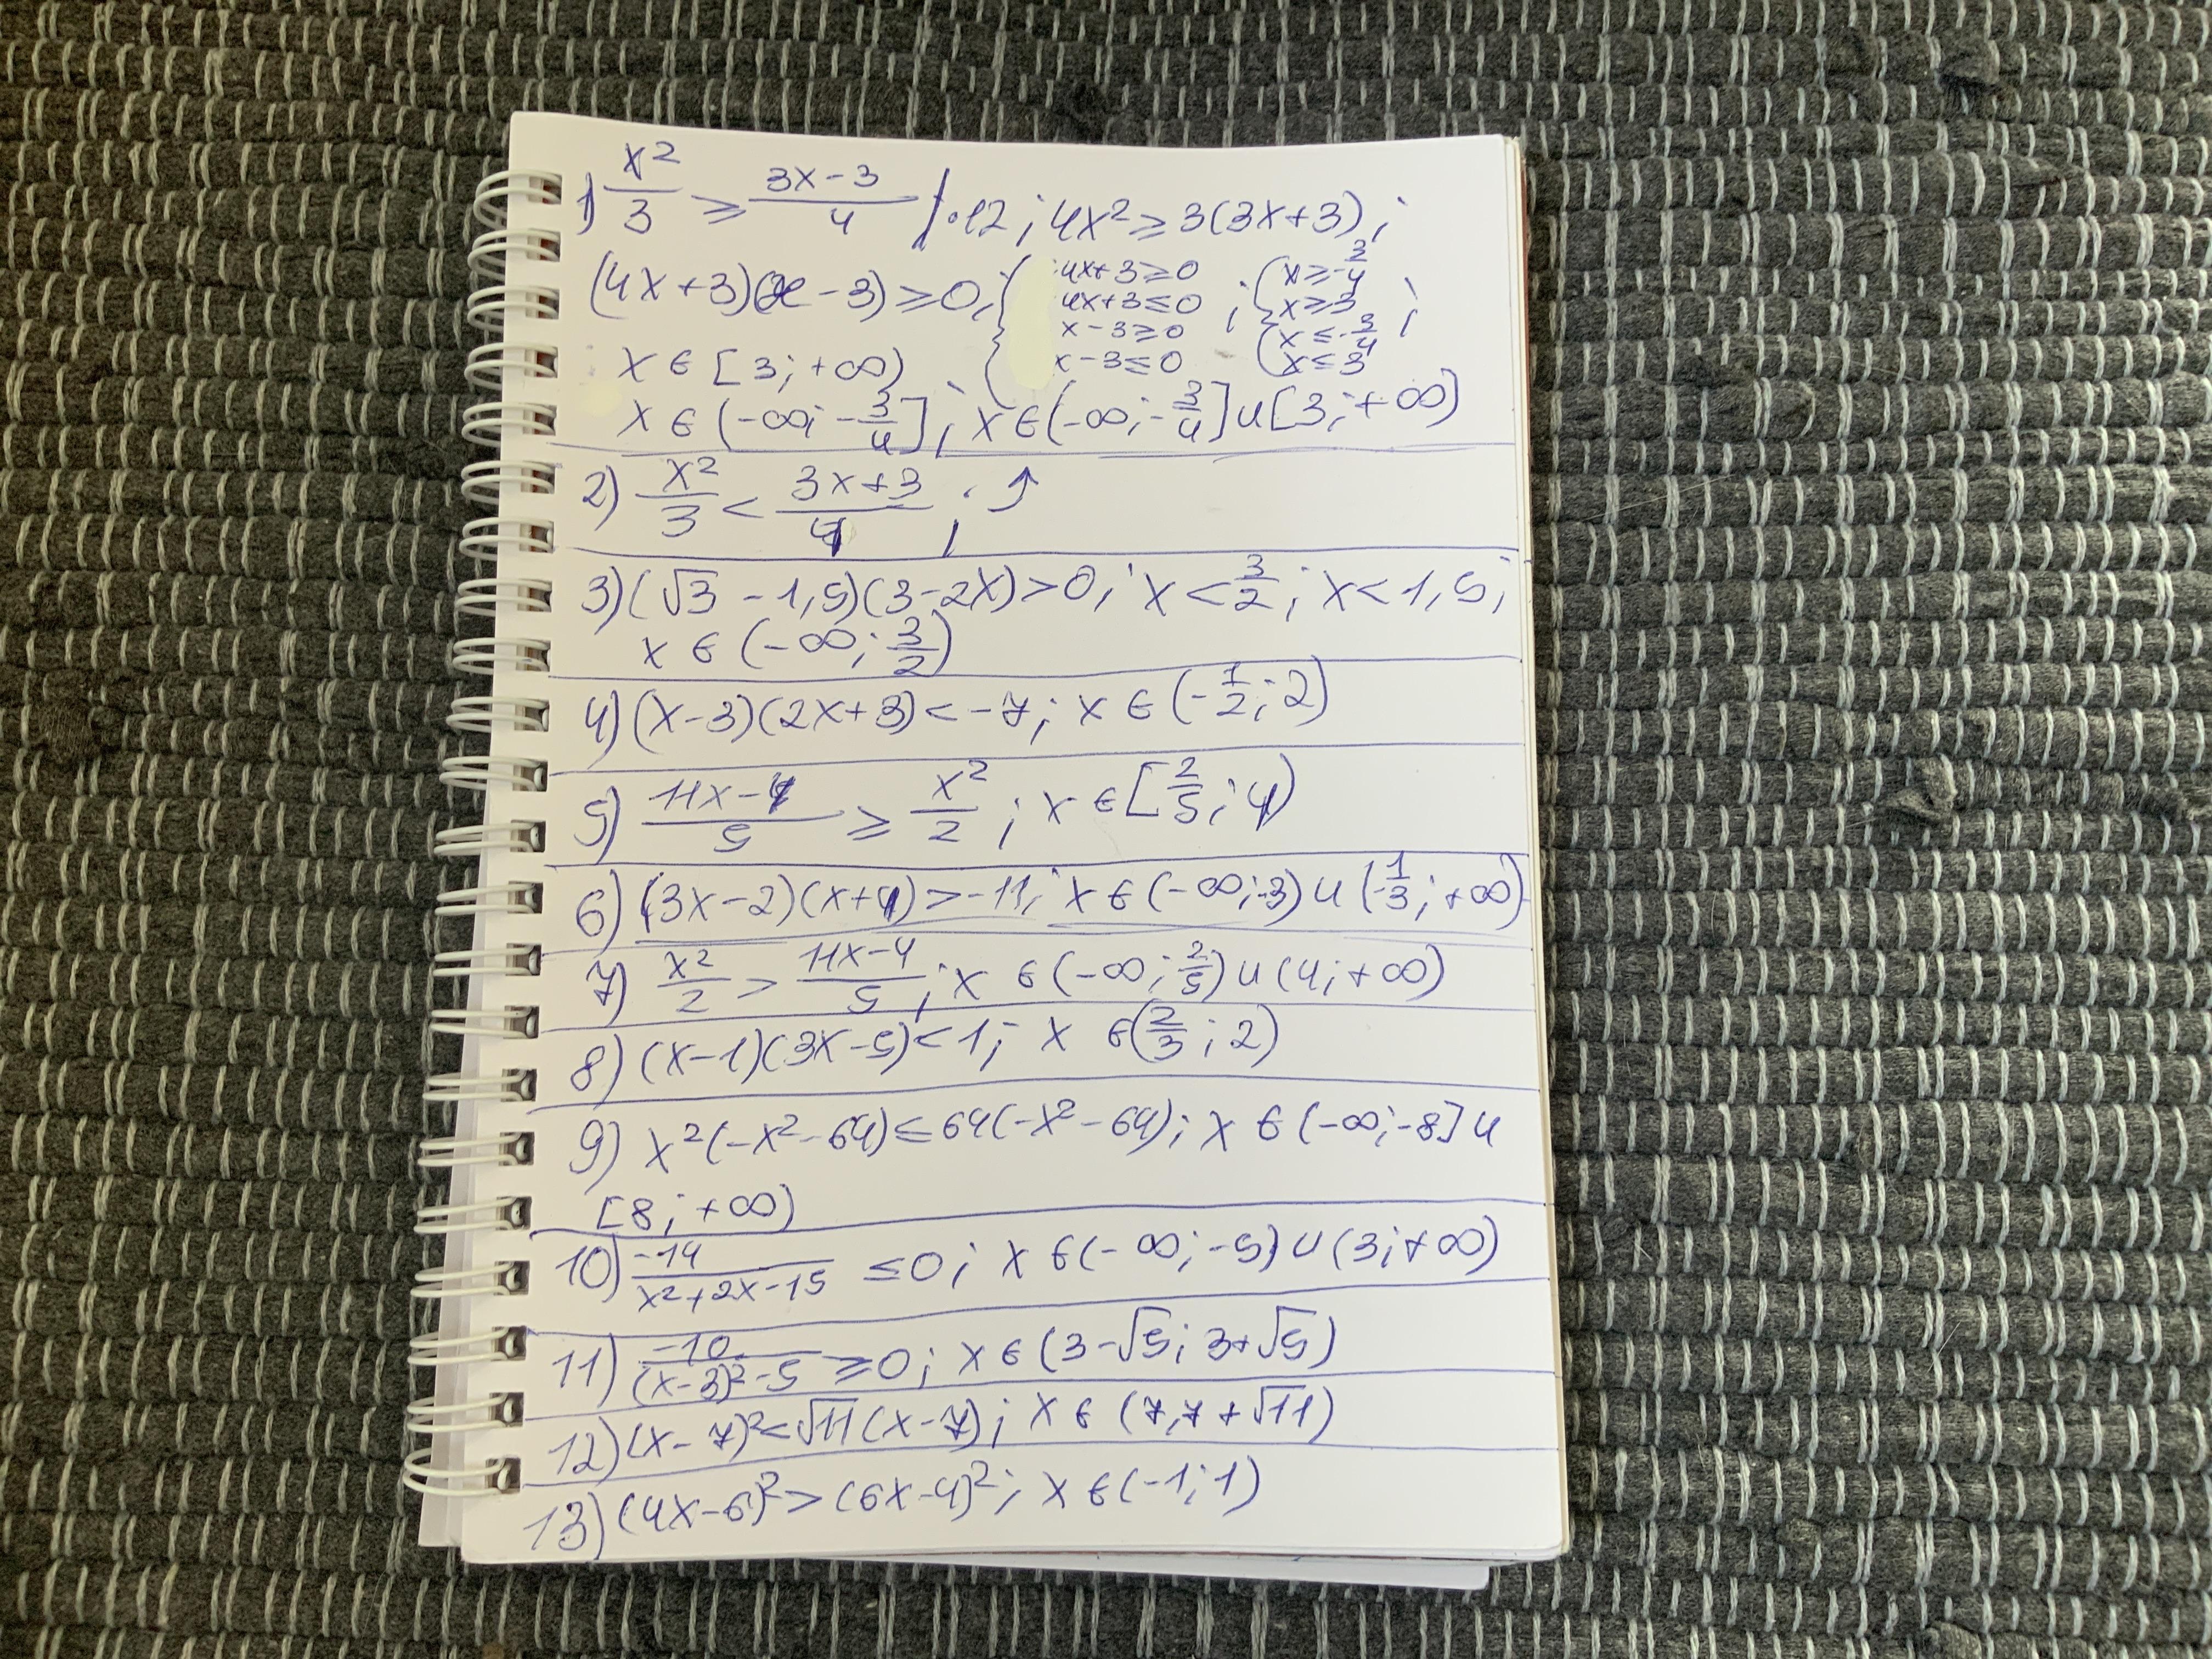 1) x²/3 ≥ (3x-3)/4 |·12; 4x² ≥ 3(3x+3);
(4x+3)(x-3) ≥ 0; { 4x+3 ≥ 0 4x+3 ≤ 0 x-3 ≥ 0 x-3 ≤ 0 ; { x ≥ -3/4 x ≥ 3 { x ≤ -3/4 x ≤ 3 ;
x ∈ [3; +∞)
x ∈ (-∞; -3/4]; x ∈ (-∞; -3/4] ∪ [3; +∞)
2) x²/3 < (3x+3)/4; ↑
3) (√3 - 1,5)(3-2x) > 0; x < 3/2; x < 1,5;
x ∈ (-∞; 3/2)
4) (x-3)(2x+3) < -7; x ∈ (-1/2; 2)
5) (11x-4)/5 ≥ x²/2; x ∈ [2/5; 4)
6) (3x-2)(x+4) > -11; x ∈ (-∞; -3) ∪ (-1/3; +∞)
7) x²/2 > (11x-4)/5; x ∈ (-∞; 2/5) ∪ (4; +∞)
8) (x-1)(3x-5) < 1; x ∈ (2/3; 2)
9) x²(-x²-64) ≤ 64(-x²-64); x ∈ (-∞; -8] ∪
[8; +∞)
10) -14/(x²+2x-15) ≤ 0; x ∈ (-∞; -5) ∪ (3; +∞)
11) -10/((x-3)²-5) ≥ 0; x ∈ (3-√5; 3+√5)
12) (x-7)² < √11(x-7); x ∈ (7, 7+√11)
13) (4x-6)² > (6x-4)²; x ∈ (-1; 1)